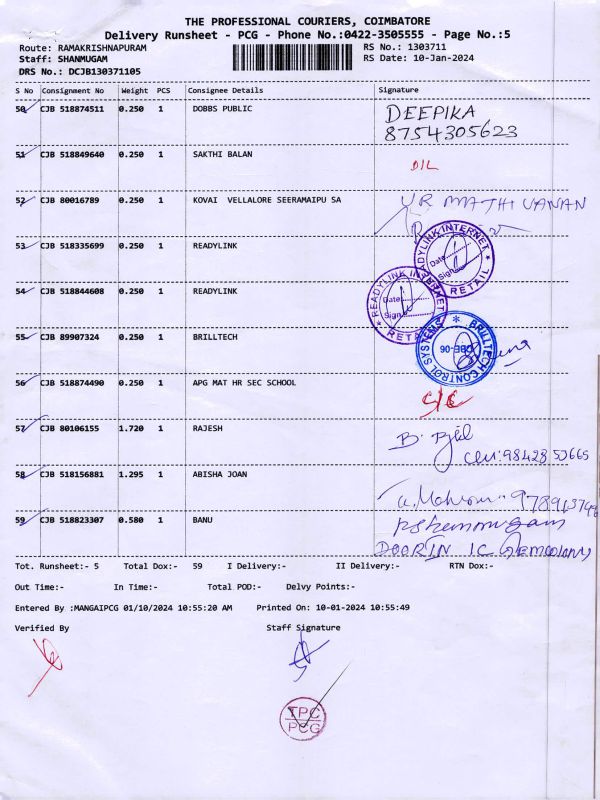 THE PROFESSIONAL COURIERS, COIMBATORE
Delivery Runsheet - PCG - Phone No.:0422-3505555 - Page No.:5
Route: RAMAKRISHNAPURAM RS No.: 1303711
Staff: SHANMUGAM RS Date: 10-Jan-2024
DRS No.: DCJB130371105
S No Consignment No Weight PCS Consignee Details Signature
50 CJB 518874511 0.250 1 DOBBS PUBLIC DEEPIKA
8754305623
51 CJB 518849640 0.250 1 SAKTHI BALAN D/L
52 CJB 80016789 0.250 1 KOVAI VELLALORE SEERAMAIPU SA V R MATHIVANAN
53 CJB 518335699 0.250 1 READYLINK
READYLINK INTERNET
Date
Sign
RETAIL
54 CJB 518844608 0.250 1 READYLINK
READYLINK INTERNET
Date
Sign
RETAIL
55 CJB 89907324 0.250 1 BRILLTECH
BRILLTECH CONTROL SYSTEMS
CBE-06
56 CJB 518874490 0.250 1 APG MAT HR SEC SCHOOL
57 CJB 80106155 1.720 1 RAJESH
58 CJB 518156881 1.295 1 ABISHA JOAN
59 CJB 518823307 0.580 1 BANU
DOOR IN
Tot. Runsheet:- 5 Total Dox:- 59 I Delivery:- II Delivery:- RTN Dox:-
Out Time:- In Time:- Total POD:- Delvy Points:-
Entered By :MANGAIPCG 01/10/2024 10:55:20 AM Printed On: 10-01-2024 10:55:49
Verified By Staff Signature
TPC
PCG